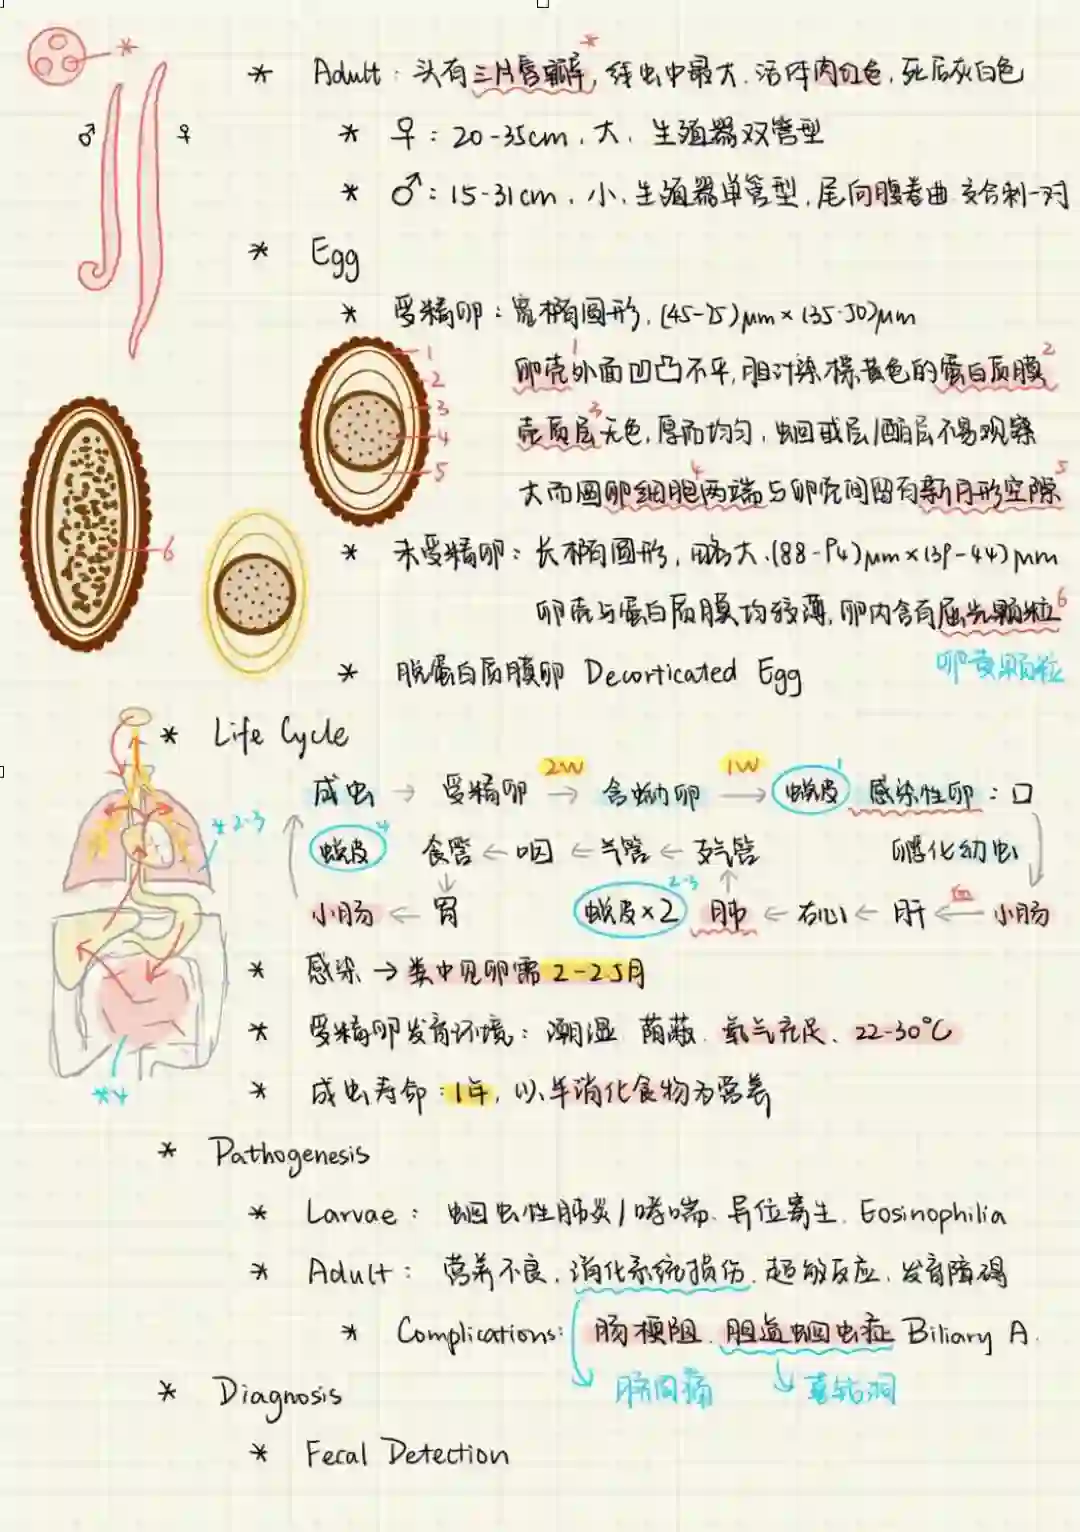 * Adult：头有三片唇瓣*，线虫中最大．活体肉红色，死后灰白色
♂ ♀
* ♀：20-35cm，大，生殖器双管型
* ♂：15-31cm，小，生殖器单管型，尾向腹卷曲 交合刺一对
* Egg
* 受精卵：宽椭圆形，(45-75)μm×(35-50)μm
卵壳1外面凹凸不平，胆汁染棕黄色的蛋白质膜2
壳质层3无色，厚而均匀，蛔甙层/酯层不易观察
大而圆卵细胞4两端与卵壳间留有新月形空隙5
1
2
3
4
5
6
* 未受精卵：长椭圆形，略大．(88-94)μm×(39-44)μm
卵壳与蛋白质膜均较薄，卵内含有屈光颗粒6
卵黄颗粒
* 脱蛋白质膜卵 Decorticated Egg
* Life Cycle
2W 1W
成虫 → 受精卵 → 含蚴卵 → 蜕皮1 感染性卵：口
蜕皮4 食管 ← 咽 ← 气管 ← 支气管 孵化幼虫
小肠 ← 胃 蜕皮×2 2-3 肺 ← 右心 ← 肝 ←血 小肠
* 2-3
* 4
* 感染 → 粪中见卵需 2-2.5月
* 受精卵发育环境：潮湿 荫蔽．氧气充足、22-30°C
* 成虫寿命：1年，以半消化食物为营养
* Pathogenesis
* Larvae：蛔虫性肺炎/哮喘．异位寄生．Eosinophilia
* Adult：营养不良，消化系统损伤，超敏反应，发育障碍
* Complications：肠梗阻．胆道蛔虫症 Biliary A.
脐周痛 钻
* Diagnosis
* Fecal Detection